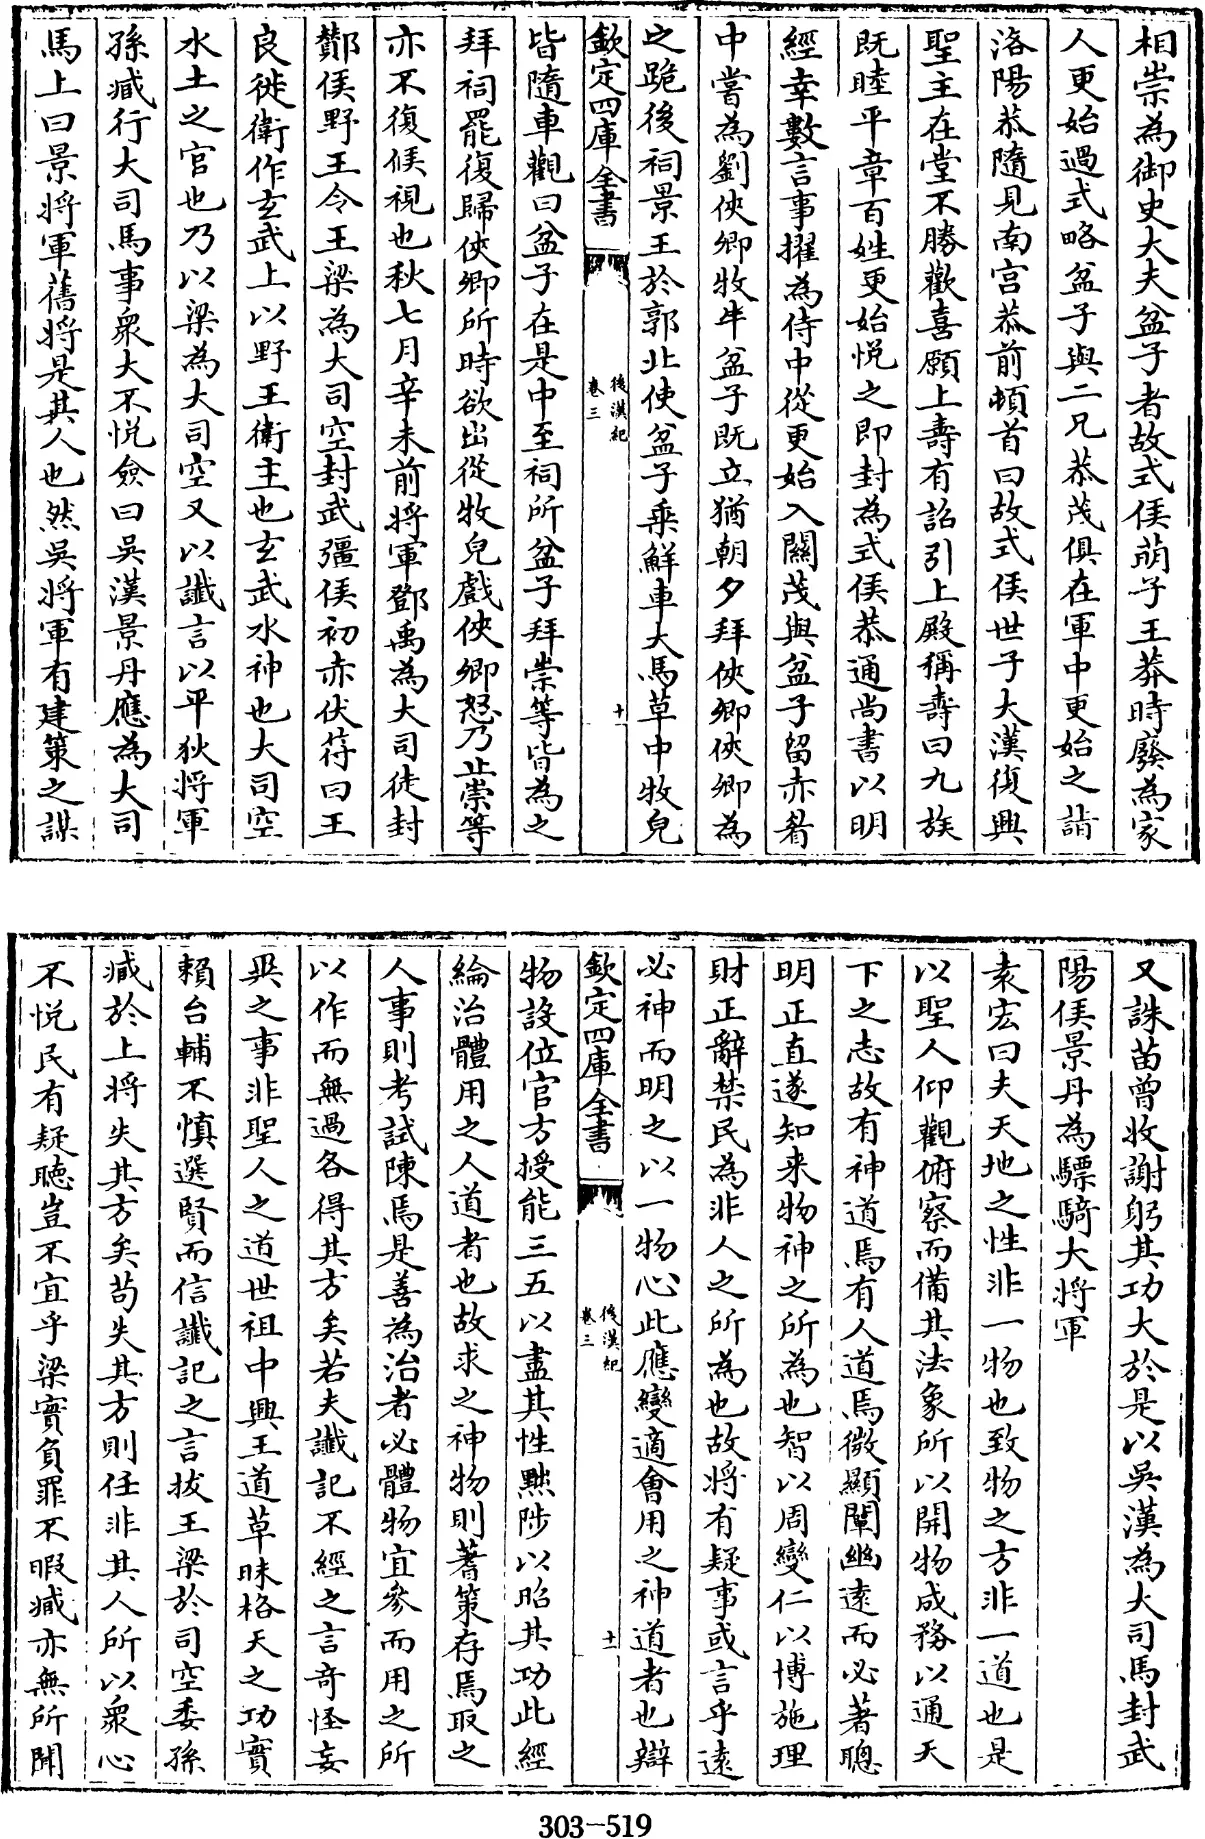 相崇為御史大夫盆子者故式侯萌子王莽時廢為家
人更始過式略盆子與二兄恭茂俱在軍中更始之詣
洛陽恭隨見南宫恭前頓首曰故式侯世子大漢復興
聖主在堂不勝歡喜願上壽有詔引上殿稱壽曰九族
既睦平章百姓更始悦之即封為式侯恭通尚書以明
經幸數言事擢為侍中從更始入關茂與盆子留赤眉
中嘗為劉俠卿牧牛盆子既立猶朝夕拜俠卿俠卿為
之跪後祠景王於郭北使盆子乗鮮車大馬草中牧兒
欽定四庫全書
後漢紀
卷三
十
皆隨車觀曰盆子在是中至祠所盆子拜崇等皆為之
拜祠罷復歸俠卿所時欲出從牧兒戲俠卿怒乃止崇等
亦不復候視也秋七月辛未前將軍鄧禹為大司徒封
酇侯野王令王梁為大司空封武彊侯初赤伏符曰王
良徙衛作玄武上以野王衛主也玄武水神也大司空
水土之官也乃以梁為大司空又以讖言以平狄將軍
孫臧行大司馬事衆大不悦僉曰吳漢景丹應為大司
馬上曰景將軍舊將是其人也然吳將軍有建策之謀
又誅苗曾收謝躬其功大於是以吳漢為大司馬封武
陽侯景丹為驃騎大將軍
袁宏曰夫天地之性非一物也致物之方非一道也是
以聖人仰觀俯察而備其法象所以開物成務以通天
下之志故有神道焉有人道焉微顯闡幽逺而必著聰
明正直遂知来物神之所為也智以周變仁以博施理
財正辭禁民為非人之所為也故将有疑事或言乎逺
必神而明之以一物心此應變適會用之神道者也辯
欽定四庫全書
後漢紀
卷三
十一
物設位官方授能三五以盡其性黜陟以昭其功此經
綸治體用之人道者也故求之神物則蓍策存焉取之
人事則考試陳焉是善為治者必體物宜參而用之所
以作而無過各得其方矣若夫讖記不經之言奇怪妄
異之事非聖人之道世祖中興王道草昧格天之功實
賴台輔不慎選賢而信讖記之言拔王梁於司空委孫
臧於上将失其方矣苟失其方則任非其人所以衆心
不悦民有疑聽豈不宜乎梁實負罪不暇臧亦無所聞
303-519